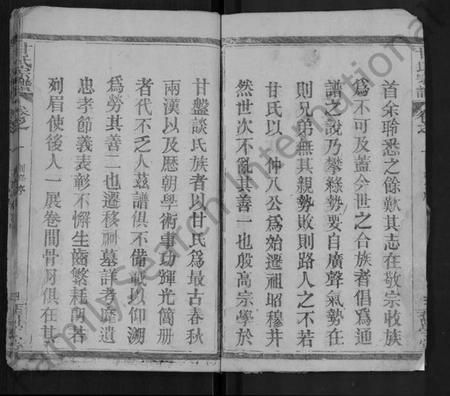 首余聆悉之餘歎其志在敬宗收族
為不可及蓋今世之合族者倡為通
譜之說乃攀緣勢要自廣聲氣勢在
則兄弟無其親勢敗則路人之不若
甘氏以仲八公為始遷祖昭穆井
然世次不亂其善一也殷高宗學於
甘盤談氏族者以甘氏為最古春秋
兩漢以及歷朝學術事功輝光簡册
者代不乏人茲譜俱不備載以仰溯
為勞其善二也遷移祠墓詳考靡遺
忠孝節義表彰不懈生齒繁耗朗若
列眉使後人一展卷間骨月俱在其
甘氏宗譜
卷之一
FamilySearch International